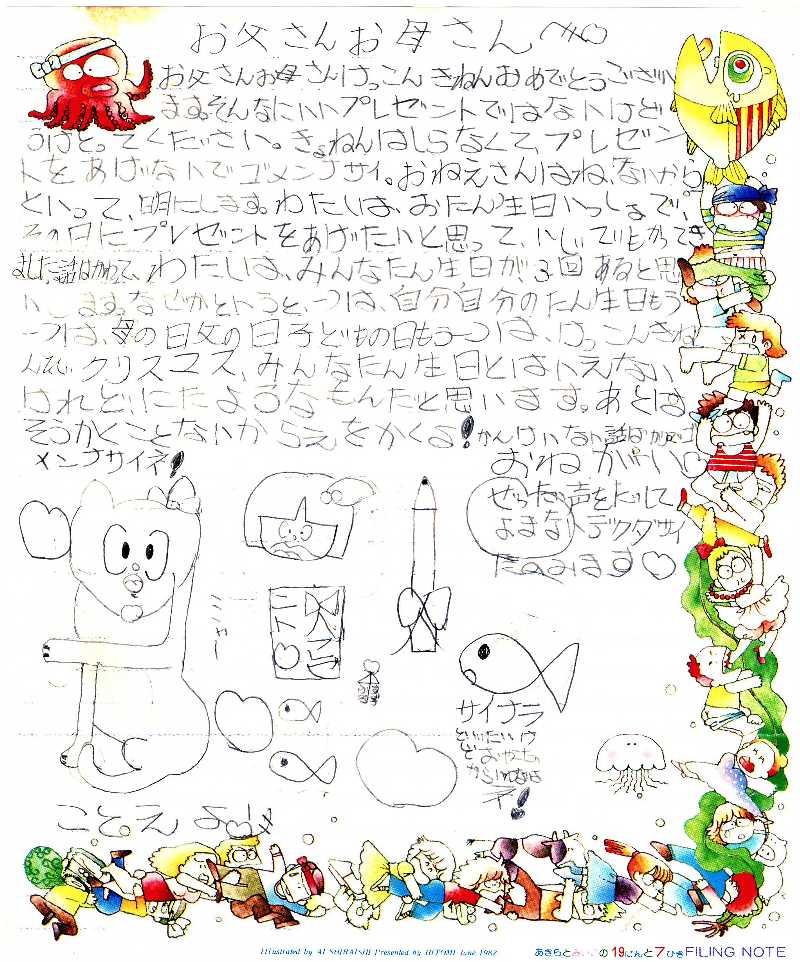 お父さんお母さんへ
お父さんお母さんけっこんきねんおめでとうござい
ます。そんなにいいプレゼントではないけど
うけとってください。きょねんはしらなくて、プレゼン
トをあげないでゴメンナサイ。おねえさんはね、ないから
といって、明にします。わたしは、おたん生日いっしょまで、
その日にプレゼントをあげたいと思って、
ました。話はかわって、わたしは、みんなたん生日が、3回あると思
いします。なぜかというと、一つは、自分自分のたん生日もう
一つは、母の日父の日子どもの日もう一つは、けっこんきね
んだし、クリスマス、みんなたん生日とはいえない
けれど、にたようなもんだと思います。あとは、
そうかくことないからえをかくよ!かんけいない話ばかりでゴ
メンナサイネ!
おねがい
ぜったい声をだして
よまないデクダサイ
たのみます
ミニャー
サイナラ
といったいケ
ど
ネ!
ことえより
Illustrated by AI SHIRAISHI Presented by HITOMI June 1982
あきらとみいこの19にんと7ひき FILING NOTE